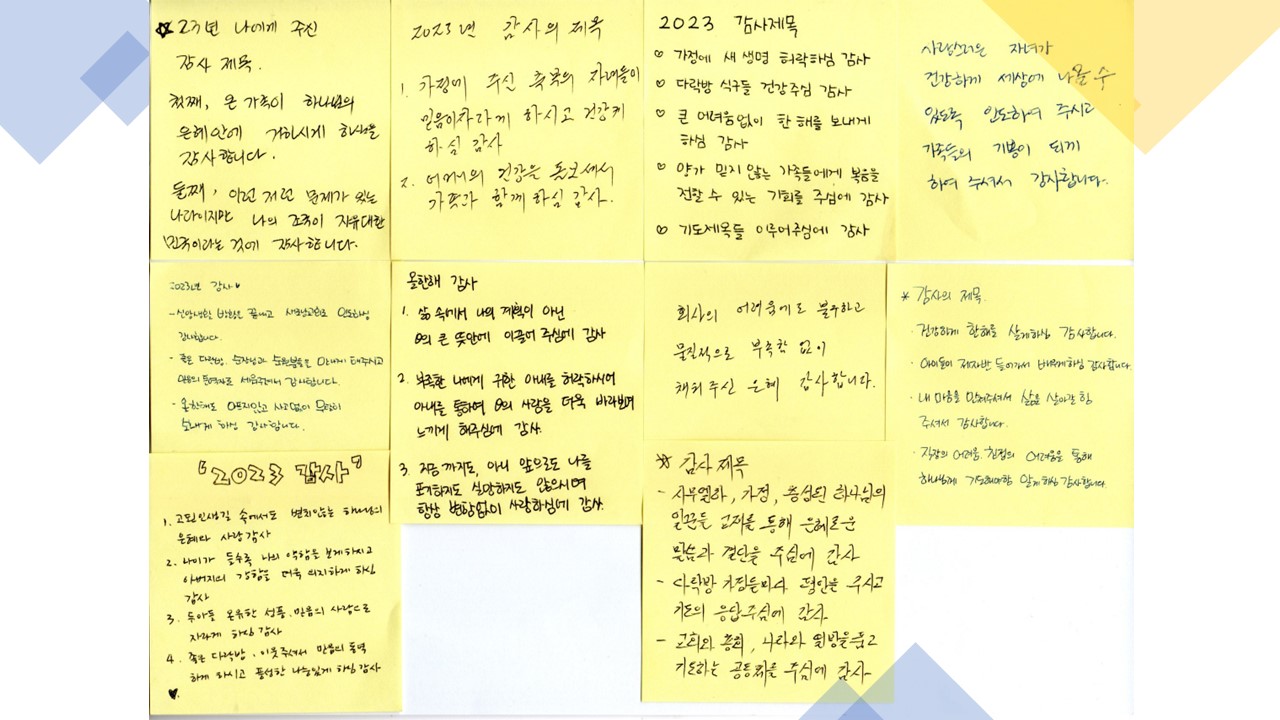 ☆ 23년 나에게 주신
감사 제목.
첫째, 온 가족이 하나님의
은혜안에 거하시게 하심을
감사합니다.
둘째, 이런 저런 문제가 있는
나라이지만 나의 조국이 자유대한
민국이라는 것에 감사합니다.
2023년 감사의 제목
1. 가정에 주신 축복의 자녀들이
믿음이자라게 하시고 건강케
하심 감사
2. 어머니의 건강을 돌보셔서
가족과 함께 하심 감사.
2023 감사제목
♡ 가정에 새 생명 허락하심 감사
♡ 다락방 식구들 건강주심 감사
♡ 큰 어려움없이 한 해를 보내게
하심 감사
♡ 양가 믿지 않는 가족들에게 복음을
전할 수 있는 기회를 주심에 감사
♡ 기도제목들 이루어주심에 감사
사랑스러운 자녀가
건강하게 세상에 나올 수
있도록 인도하여 주시고
가족들의 기쁨이 되게
하여 주셔서 감사합니다.
2023년 감사♥
- 신앙생활 방황을 끝내고 인도하심
감사합니다.
- 좋은 다락방, 순장님과 순원분들을 만나게 해주시고
세움주셔서 감사합니다.
- 올한해도 아프지않고 사고없이 무탈히
보내게 하심 감사합니다.
올한해 감사
1. 삶 속에서 나의 계획이 아닌
θ의 큰 뜻안에 이끌어 주심에 감사
2. 부족한 나에게 귀한 아내를 허락하시어
아내를 통하여 θ의 사랑을 더욱 바라보며
느끼게 해주심에 감사.
3. 지금까지도, 아니 앞으로도 나를
포기하지도 실망하지도 않으시며
항상 변함없이 사랑하심에 감사.
회사의 어려움에도 불구하고
물질적으로 부족함 없이
채워주신 은혜 감사합니다.
* 감사의 제목.
· 건강하게 한해를 살게하심 감사합니다.
· 아이들이 제자반 들어가서 배우게하심 감사합니다.
· 내 마음을 만져주셔서 삶을 살아갈 힘
주셔서 감사합니다.
· 직장의 어려움, 친정의 어려움을 통해
하나님께 기도해야함 알게하심 감사합니다.
"2023 감사"
1. 고된인생길 속에서도 변치않는 하나님의
은혜와 사랑 감사
2. 나이가 들수록 나의 약함을 보게하시고
아버지의 강함을 더욱 의지하게 하심
감사
3. 두아들 온유한 성품, 믿음의 사람으로
자라게 하심 감사
4. 좋은 다락방, 이웃주셔서 믿음의 동역
하게 하시고 풍성한 나눔있게 하심 감사
♥.
☆ 감사제목
- 사무엘하, 가정, 충성된 하나님의
일꾼들 교재를 통해 은혜로운
말씀과 결단을 주심에 감사
- 다락방 가정들마다 평안을 주시고
기도의 응답주심에 감사
- 교회와 총회, 나라와 열방을품고
기도하는 공동체를 주심에 감사